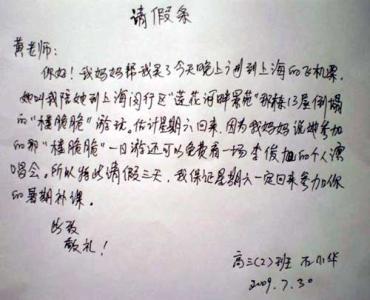 请假条
黄老师：
你好！我妈妈帮我买了今天晚上６点到上海的飞机票，
她叫我陪她到上海闵行区“莲花河畔景苑”那栋13层倒塌
的“楼脆脆”游玩，估计星期六回来，因为我妈妈说她参加
的那“楼脆脆”一日游还可以免费看一场李俊旭的个人演
唱会。所以特此请假三天，我保证星期六一定回来参加你
的暑期补课。
此致
敬礼！
高三（2）班 石小华
2009.7.30